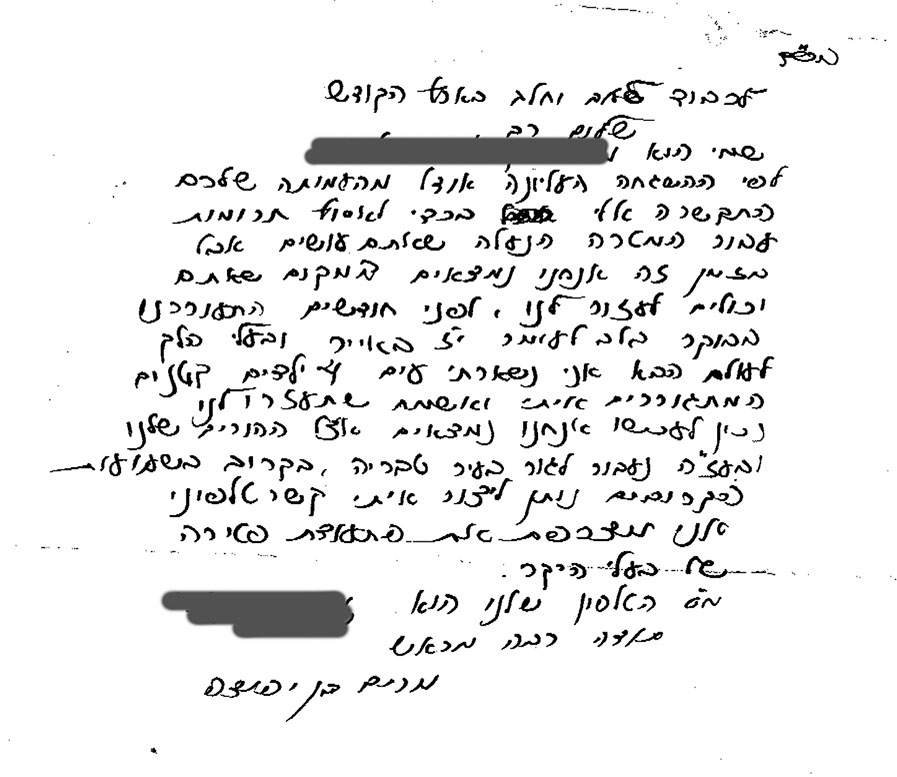 בס"ד
לכבוד שלום וחלב בארץ הקודש
שלום רב
שמי הוא
לפי ההשגחה העליונה אודל מהעמותה שלכם
התקשרה אלי בכדי לאסוף תרומות
עבור המטרה הנעלה שאתם עושים אבל
בזמן זה אנחנו נמצאים במקום שאתם
יכולים לעזור לנו, לפני חודשים התעוררנו
בבוקר בלב לעימר י"ז באייר ובעלי הלך
לעולם הבא אני נשארתי עים ילדים קטנים
המתגוררים איתי ואשמח שתעזרו לנו
נכון לעכשו אנחנו נמצאים אצל ההורים שלנו
ובעז"ה נעבור לגור בעיר טבריה, בקרוב בשבועות
הקרובים נותן ליצור איתי קשר טלפוני
אני מצרפת את תעודת פטירה
של בעלי היקר.
מס הטלפון שלנו הוא
תודה רבה מראש
מרים בן